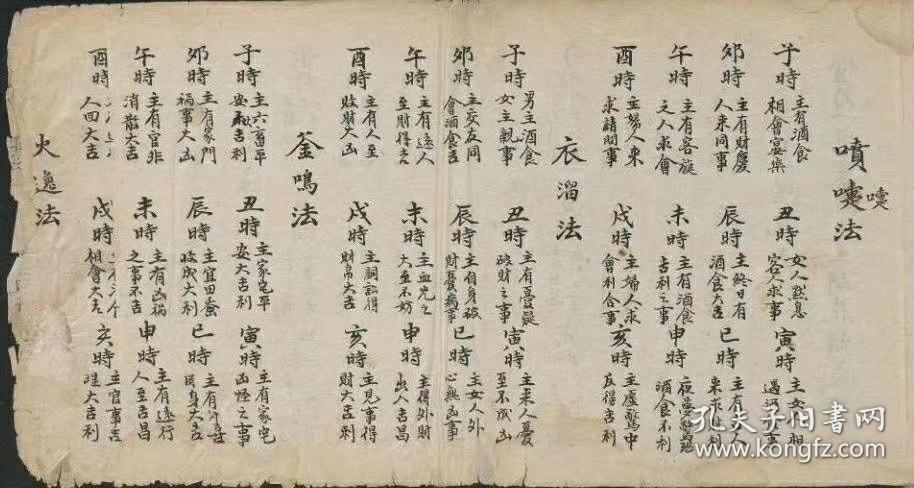 噴嚏法
嚏
子時 主有酒食相會宴樂
丑時 女人思息客人求事
寅時 主女相遇酒事
夘時 主有財慶人來同事
辰時 主終日有酒食大吉
巳時 主有人來求吉利
午時 主有客旋之人求會
未時 主有酒食吉利之事
申時 夜夢酒食不利
酉時 主婦人來求請問事
戌時 主婦人求會利合事
亥時 主虛驚中反得吉利
衣溜法
子時 男主酒食女主親事
丑時 主有憂疑破財之事
寅時 主來人憂至不成凶
夘時 主交友同會酒食吉
辰時 主自身破財憂病事
巳時 主女人外心無凶事
午時 主有遠人至財得之
未時 主血光之大至不妨
申時 主得外財出人吉昌
酉時 主有人至敗財大凶
戌時 主詞訟得財帛大吉
亥時 主見事得財大吉
釜鳴法
子時 主六畜平安和吉利
丑時 主家宅平安大吉利
寅時 主有家宅凶怪之事
夘時 主有家門禍事大凶
辰時 主宜田蚕收成大利
巳時 主有身大吉
午時 主有官非消散大吉
未時 主有凶禍之事不吉
申時 主有遠行人至吉昌
酉時 人四大吉
戌時 相會大吉
亥時 主官事吉 大吉利
火逸法
孔夫子旧书网
www.kongfz.com